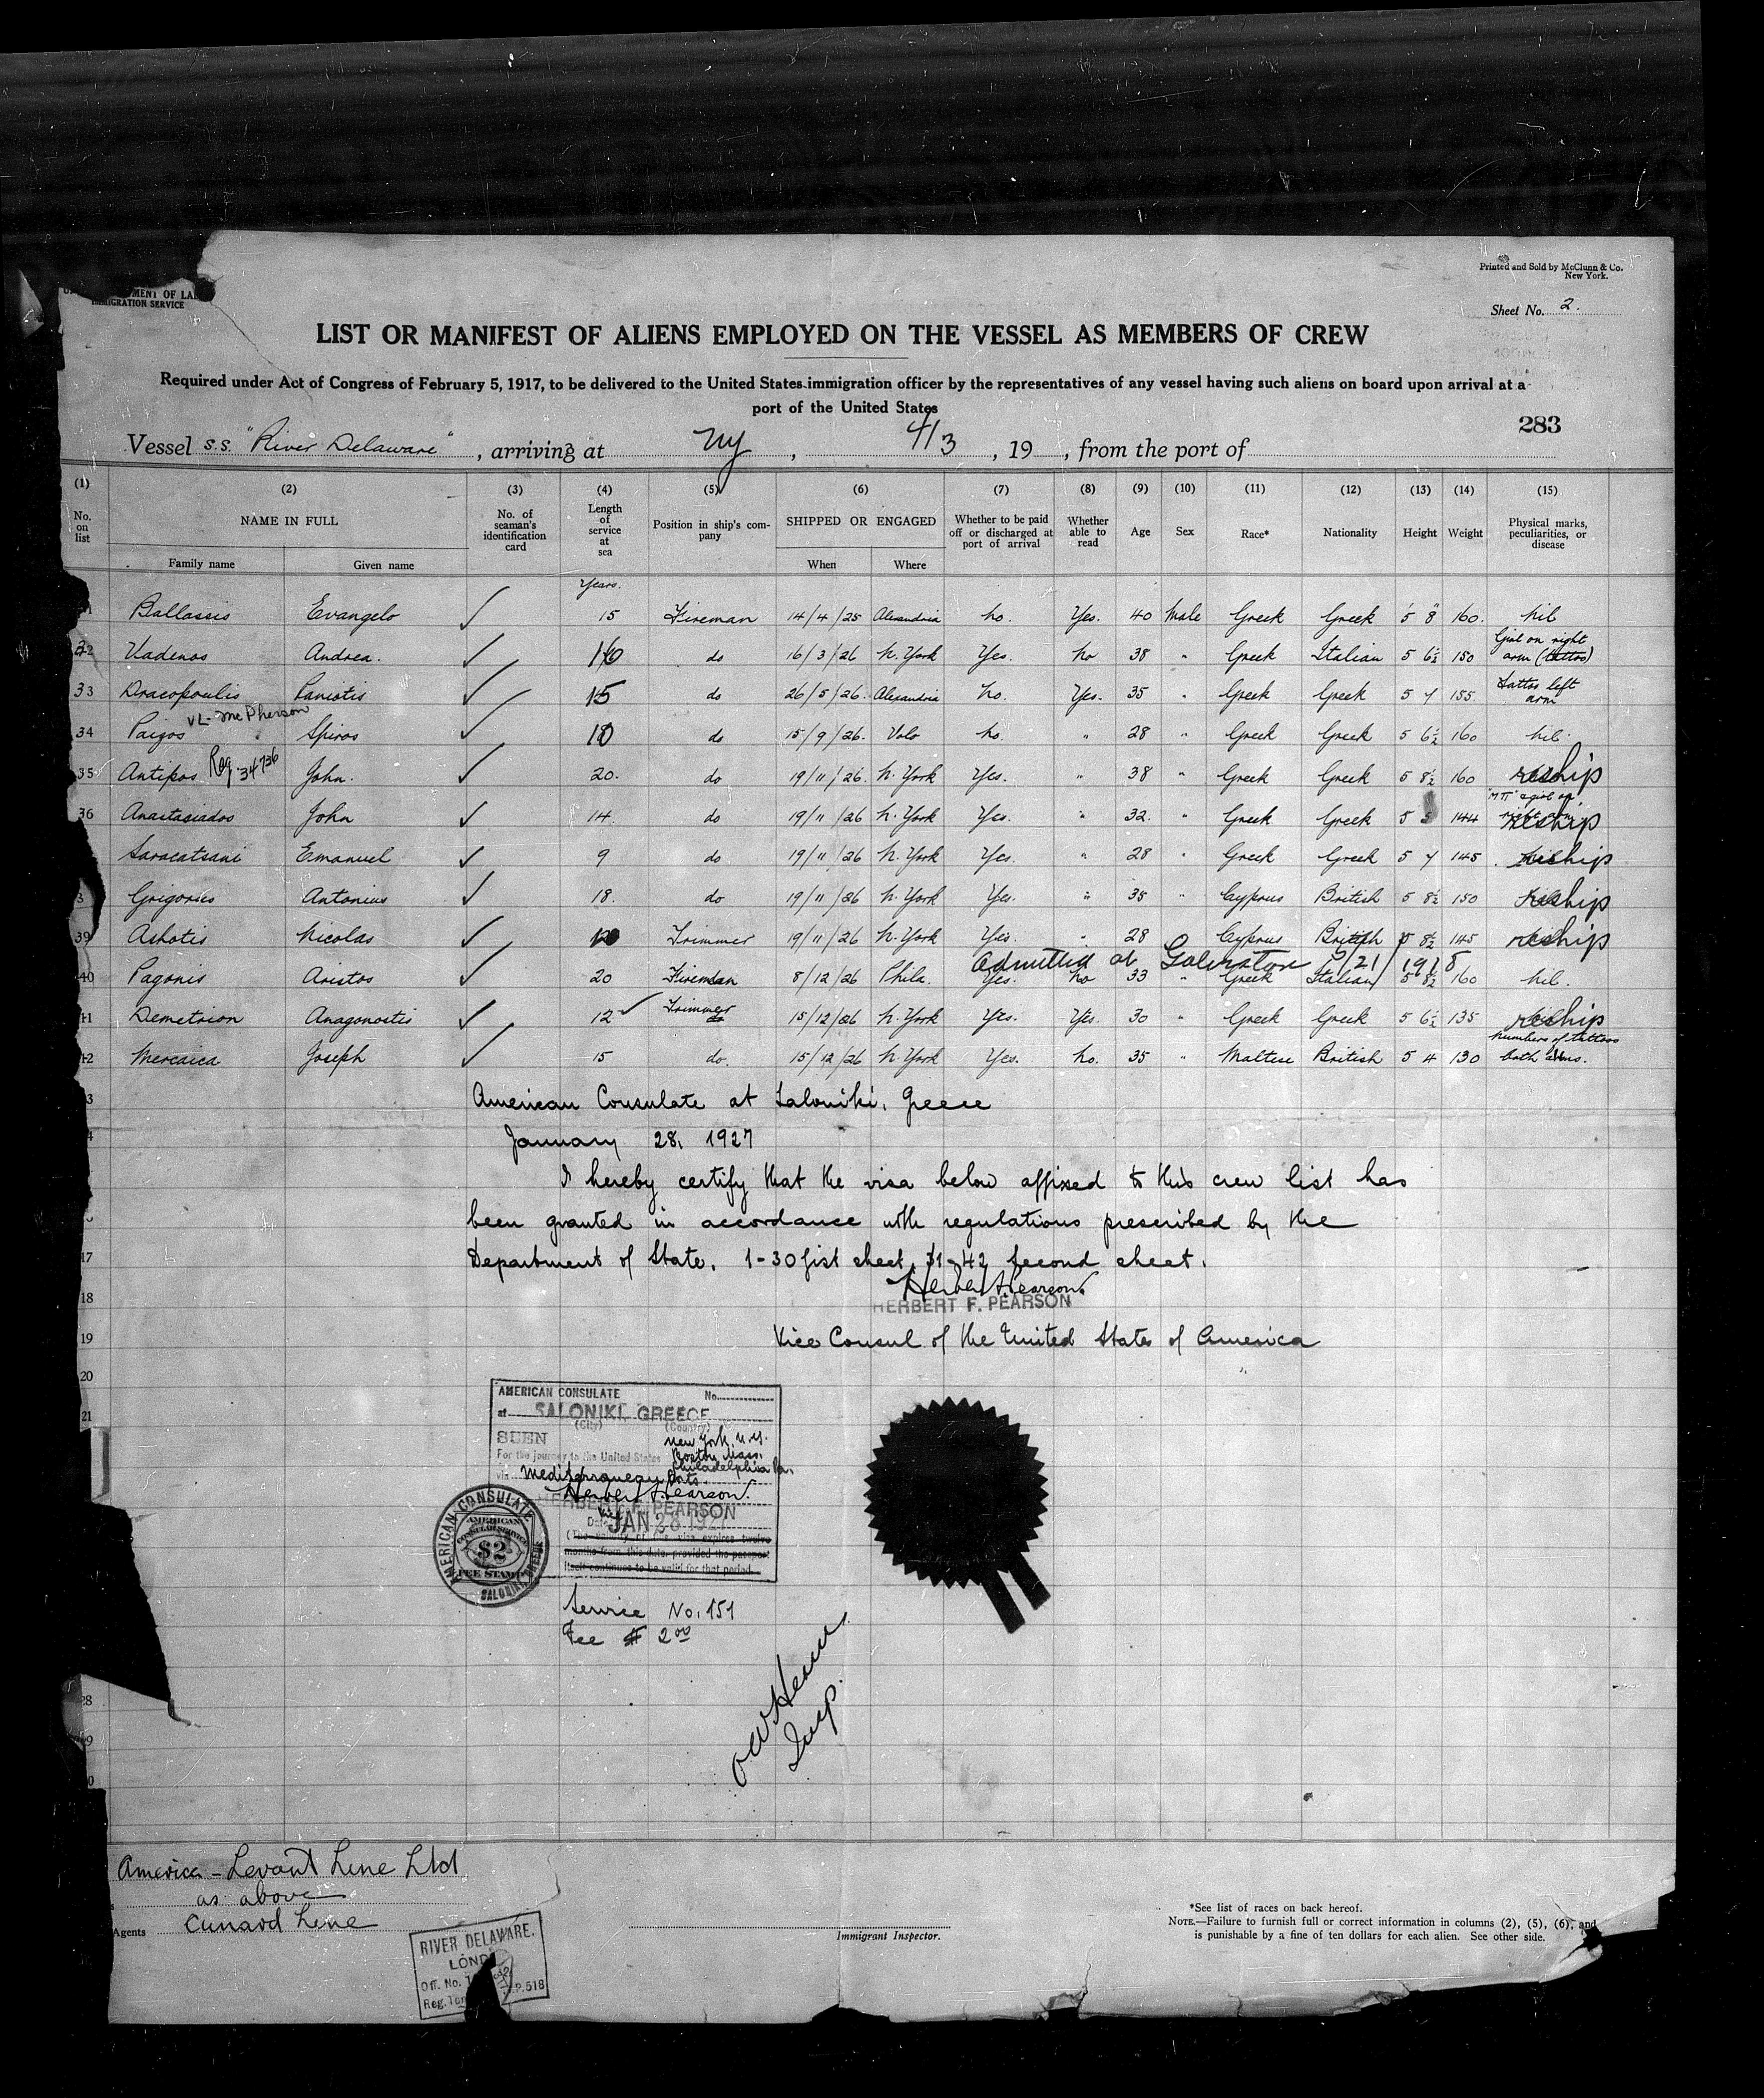 MENT OF LA
IMMIGRATION SERVICE
Printed and Sold by McClunn & Co.
New York.
Sheet No. 2.
LIST OR MANIFEST OF ALIENS EMPLOYED ON THE VESSEL AS MEMBERS OF CREW
Required under Act of Congress of February 5, 1917, to be delivered to the United States immigration officer by the representatives of any vessel having such aliens on board upon arrival at a
port of the United States
283
Vessel S.S. "River Delaware", arriving at NY, 4/3, 19 , from the port of
(1) (2) (3) (4) (5) (6) (7) (8) (9) (10) (11) (12) (13) (14) (15)
No. on list NAME IN FULL No. of seaman's identification card Length of service at sea Position in ship's company SHIPPED OR ENGAGED Whether to be paid off or discharged at port of arrival Whether able to read Age Sex Race* Nationality Height Weight Physical marks, peculiarities, or disease
Family name Given name When Where
Years.
1 Ballassis Evangelo ✓ 15 Fireman 14/4/25 Alexandria No. Yes. 40 Male Greek Greek 5' 8" 160. Nil
Girl on right
32 Vadinos Andrea. ✓ 16 do 16/3/26 N. York Yes. No 38 " Greek Italian 5 6½ 150 arm (tattoo)
33 Dracopoulis Paniotis ✓ 15 do 26/5/26. Alexandria No. Yes. 35 " Greek Greek 5 7 155. Tattoo left arm
VL- McPherson
34 Paizos Spiros ✓ 10 do 15/9/26. Volo No. " 28 " Greek Greek 5 6½ 160 Nil.
35 Antipas Reg. 34736 John. ✓ 20. do 19/11/26. N. York Yes. " 38 " Greek Greek 5 8½ 160 reship
36 Anastasiados John ✓ 14. do 19/11/26 N. York Yes. " 32. " Greek Greek 5 144 reship
Saracatsani Emanuel ✓ 9 do 19/11/26 N. York Yes. " 28 " Greek Greek 5 7 145 reship
3 Grigories Antonius ✓ 18. do 19/11/26 N. York Yes. " 35 " Cyprus British 5 8½ 150 reship
39 Ashotis Nicolas ✓ Trimmer 19/11/26 N. York Yes. " 28 Cyprus British 5 8½ 145 reship
Admitted at Galveston /21/1918
40 Pagonis Aristos ✓ 20 Fireman 8/12/26 Phila. Yes. No 33 " Greek Italian 5 8½ 160 Nil.
41 Demetrion Anagonostis ✓ 12 ✓ Trimmer 15/12/26 N. York Yes. Yes. 30 " Greek Greek 5 6½ 135 reship
Numbers of tattoos
42 Mercaica Joseph ✓ 15 do. 15/12/26 N York Yes. No. 35 " Maltese British 5 4 130 both arms.
3
American Consulate at Saloniki, Greece
4
January 28, 1927
I hereby certify that the visa below affixed to this crew list has
been granted in accordance with regulations prescribed by the
17
Department of State. 1-30 fist sheet, 31-42 second sheet.
Herbert F. Pearson.
18
HERBERT F. PEARSON
19
Vice Consul of the United States of America
20
21
AMERICAN CONSULATE No.
at SALONIKI, GREECE
(City) (Country)
SEEN New York, N.Y.
For the journey to the United States Boston, Mass.
Philadelphia Pa.
via Mediterranean Ports
Herbert F. Pearson.
HERBERT F. PEARSON
Date JAN 28 1927
(The validity of this visa expires twelve
months from this date, provided the passport
itself continues to be valid for that period.
AMERICAN CONSULATE
AMERICAN
CONSULAR SERVICE
$2
FEE STAMP
SALONIKI, GREECE
Service No. 151
Fee $ 2 00
Insp.
28
9
0
America - Levant Line Ltd
as above
Agents Cunard Line
RIVER DELAWARE.
LOND
Off. No.
Reg. Ton P. 518
Immigrant Inspector.
*See list of races on back hereof.
NOTE.—Failure to furnish full or correct information in columns (2), (5), (6), and
is punishable by a fine of ten dollars for each alien. See other side.